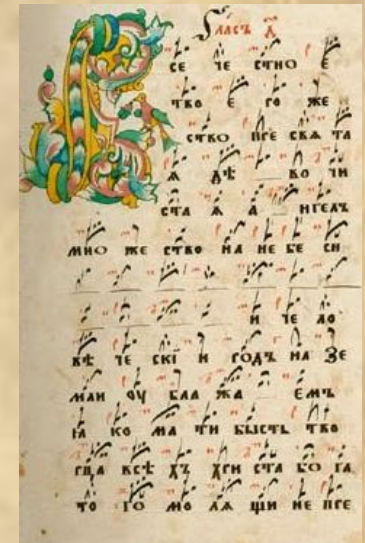 Гласъ д҃
се че стно е
тво е го же
ство пре свѧ та
ѧ дѣ во чи
ста ѧ а нгелъ
мно же ство на не бе си
и че ло
вѣ че скїи родъ на зе
мли оу бла жа емъ
ꙗ ко ма ти бысть тво
рца всѣ хъ хри ста бо га
то го мо лѧ щи не пре